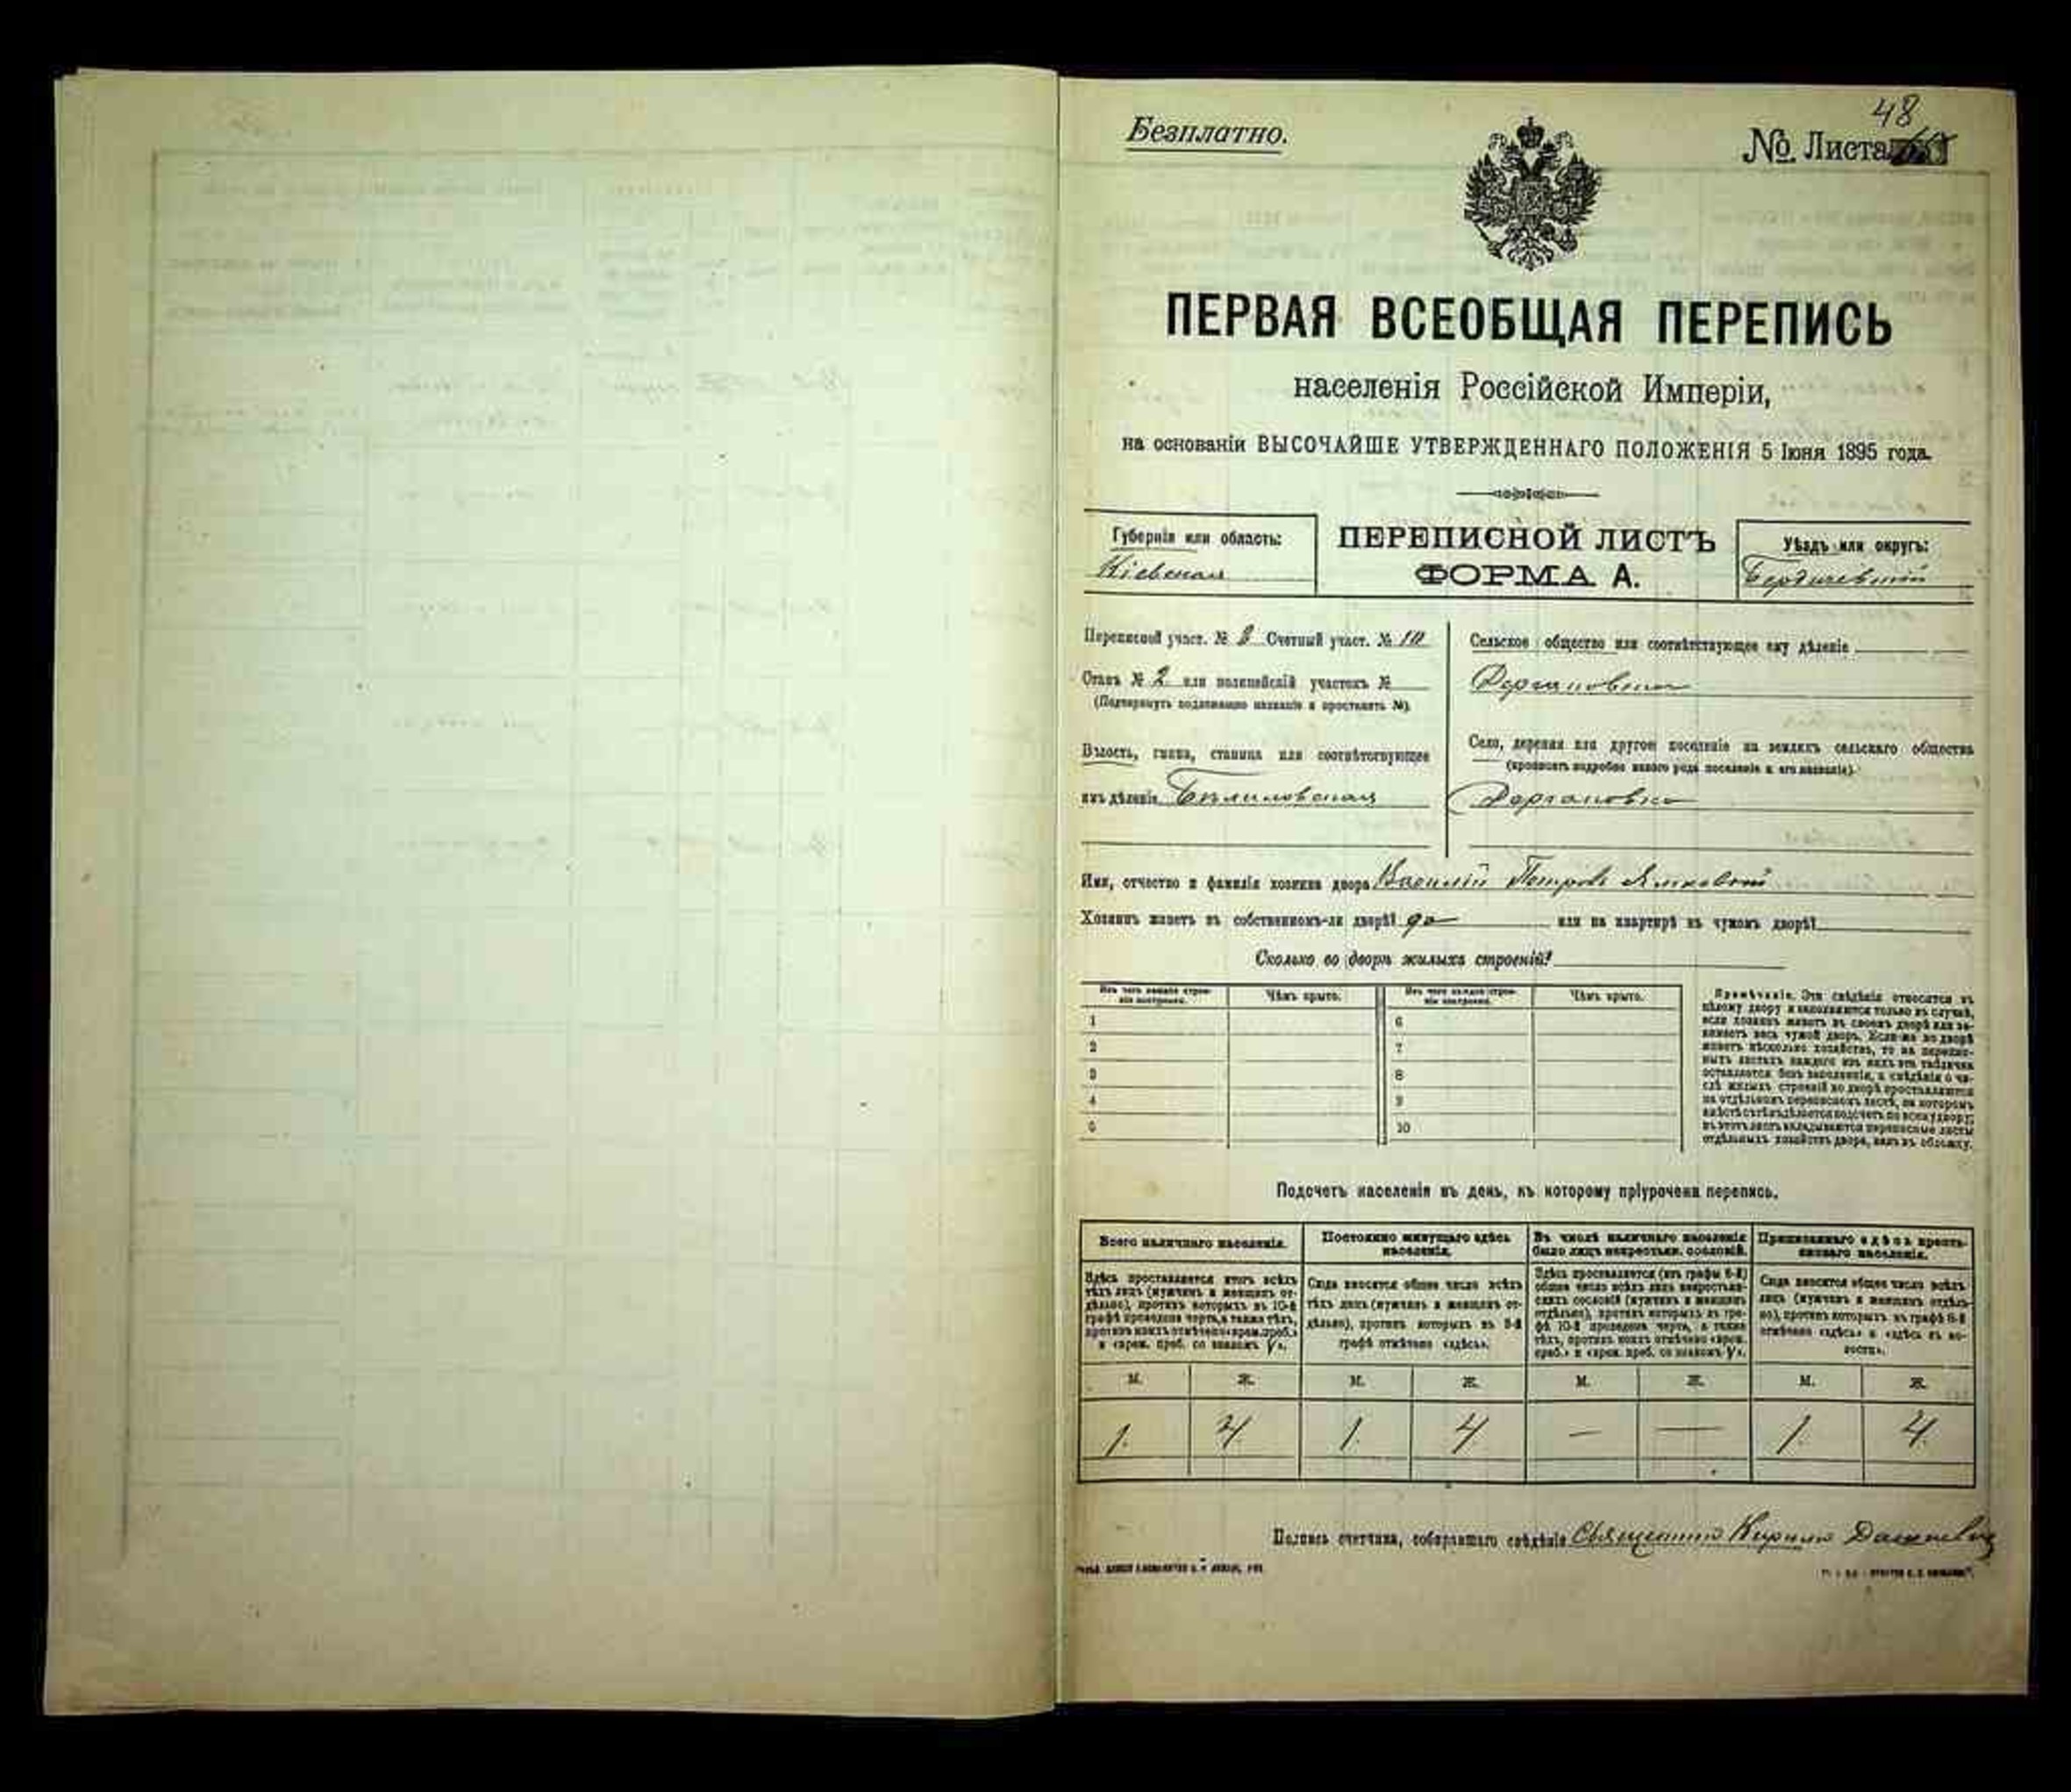 48
Безплатно.
№ Листа
ПЕРВАЯ ВСЕОБЩАЯ ПЕРЕПИСЬ
населенія Россійской Имперіи,
на основаніи ВЫСОЧАЙШЕ УТВЕРЖДЕННАГО ПОЛОЖЕНІЯ 5 Іюня 1895 года.
Губернія или область:
Кіевская
ПЕРЕПИСНОЙ ЛИСТЪ
ФОРМА А.
Уѣздъ или округъ:
Бердичевскій
Переписной участ. № 2 Счетный участ. №
Станъ № 2 или полицейскій участокъ №
(Подчеркнуть подлежащее названіе и проставить №).
Волость, гмина, станица или соотвѣтствующее
имъ дѣленіе Бѣлиловская
Сельское общество или соотвѣтствующее ему дѣленіе
Село, деревня или другое поселеніе на земляхъ сельскаго общества
(прописать подробно какого рода поселеніе и его названіе).
Дергановка
Имя, отчество и фамилія хозяина двора Василій Петровъ
Хозяинъ живетъ въ собственномъ-ли дворѣ? да или на квартирѣ въ чужомъ дворѣ?
Сколько во дворѣ жилыхъ строеній?
Изъ чего каждое строе-
ніе построено.
Чѣмъ крыто.
Изъ чего каждое строе-
ніе построено.
Чѣмъ крыто.
1
2
3
4
5
6
7
8
9
10
Примѣчаніе. Эти свѣдѣнія относятся къ
цѣлому двору и заполняются только въ случаѣ,
если хозяинъ живетъ въ своемъ дворѣ или за-
нимаетъ весь чужой дворъ. Если-же во дворѣ
живетъ нѣсколько хозяйствъ, то на перепис-
ныхъ листахъ каждаго изъ нихъ эта табличка
оставляется безъ заполненія, а свѣдѣнія о чи-
слѣ жилыхъ строеній во дворѣ проставляются
на отдѣльномъ переписномъ листѣ, на которомъ
вмѣстѣ съ тѣмъ дѣлается подсчетъ по всему двору;
въ этотъ листъ вкладываются переписные листы
отдѣльныхъ хозяйствъ двора, какъ въ обложку.
Подсчетъ населенія въ день, къ которому пріурочена перепись.
Всего наличнаго населенія.
Здѣсь проставляется итогъ всѣхъ
тѣхъ лицъ (мужчинъ и женщинъ от-
дѣльно), противъ которыхъ въ 10-й
графѣ проведена черта, а также тѣхъ,
противъ коихъ отмѣчено «врем. преб.»
и «врем. преб. со знакомъ V».
Постоянно живущаго здѣсь
населенія.
Сюда вносится общее число всѣхъ
тѣхъ лицъ (мужчинъ и женщинъ от-
дѣльно), противъ которыхъ въ 9-й
графѣ отмѣчено «здѣсь».
Въ числѣ наличнаго населенія
было лицъ некрестьян. сословій.
Здѣсь проставляется (изъ графы 6-й)
общее число всѣхъ лицъ некрестьян-
скихъ сословій (мужчинъ и женщинъ
отдѣльно), противъ которыхъ въ гра-
фѣ 10-й проведена черта, а также
тѣхъ, противъ коихъ отмѣчено «врем.
преб.» и «врем. преб. со знакомъ V».
Приписаннаго здѣсь кресть-
янскаго населенія.
Сюда вносится общее число всѣхъ
лицъ (мужчинъ и женщинъ отдѣль-
но), противъ которыхъ въ графѣ 8-й
отмѣчено «здѣсь» и «здѣсь въ во-
лости».
М. Ж. М. Ж. М. Ж. М. Ж.
1. 4. 1. 4. — — 1. 4.
Подпись счетчика, собиравшаго свѣдѣнія Священникъ Кириллъ